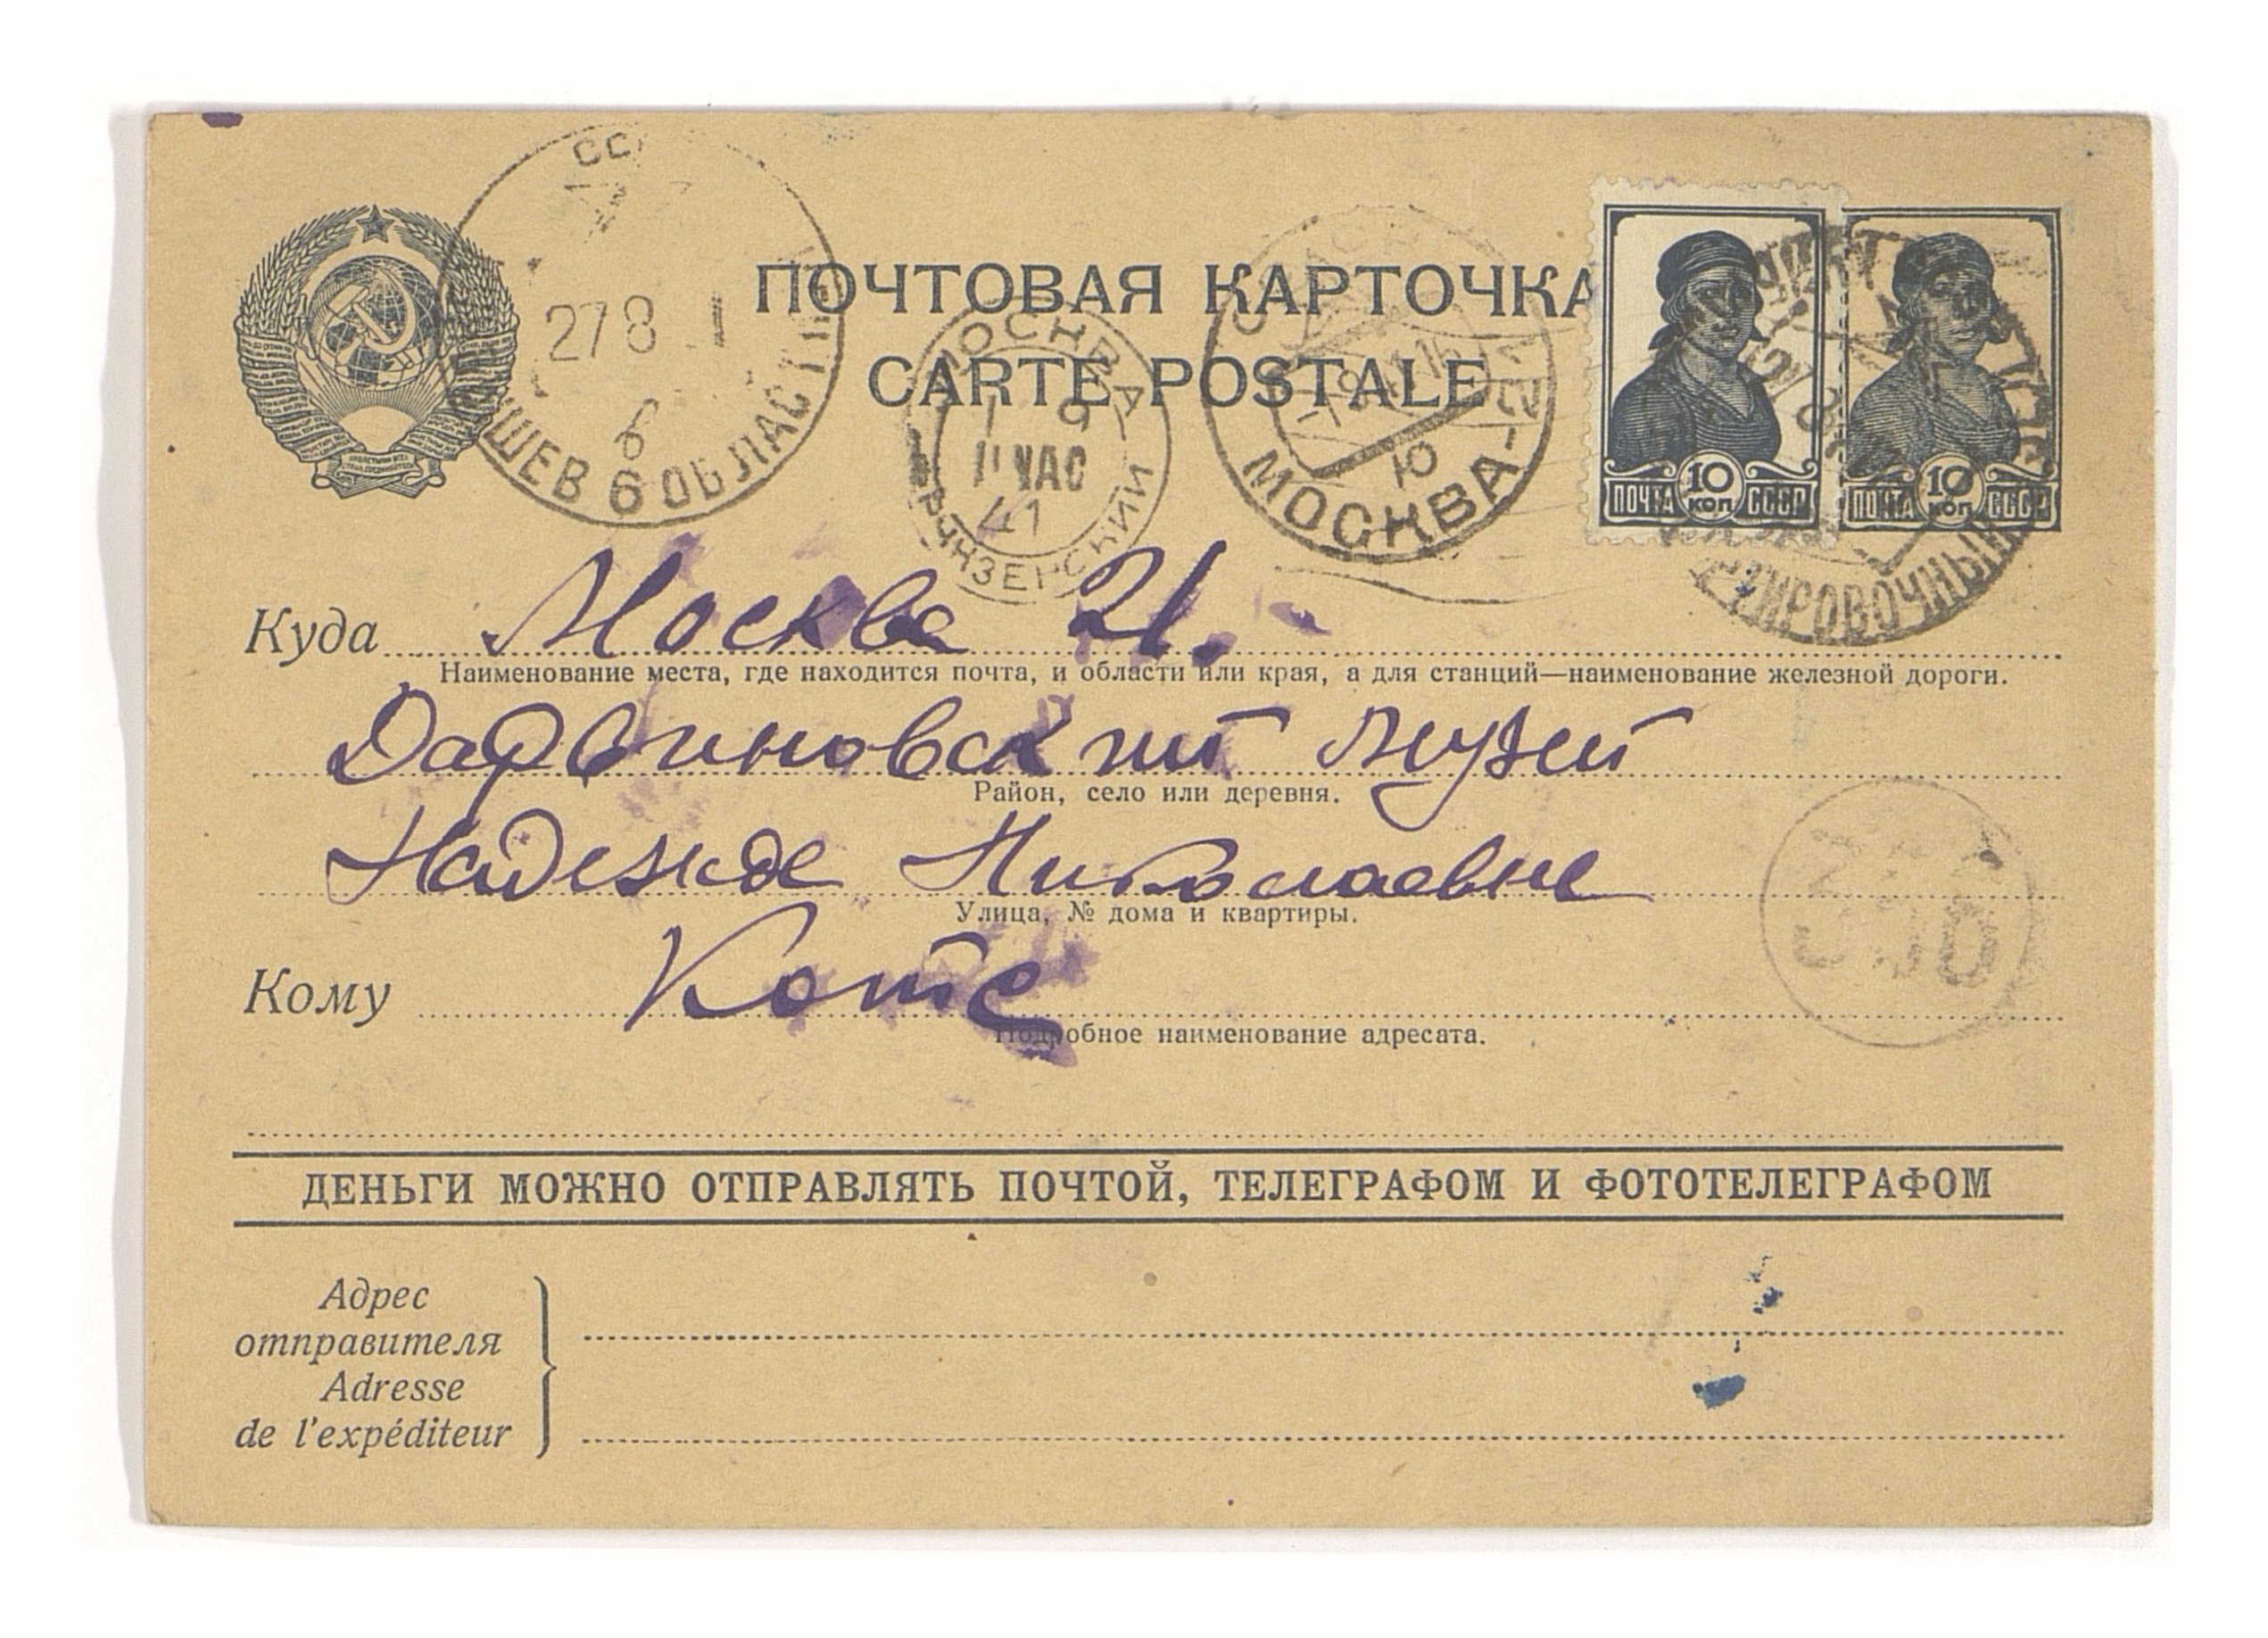 ПОЧТОВАЯ КАРТОЧКА
CARTE POSTALE
278 1
6
ШЕВ 6 ОБЛАСТН
МОСКВА
1 9
11 ЧАС
41
МОСКВА-
Ю
ПОЧТА 10 КОП СССР
ПОЧТА 10 КОП СССР
Куда Москва 21.
Наименование места, где находится почта, и области или края, а для станций—наименование железной дороги.
Дарвиновский музей
Район, село или деревня.
Надежде Николаевне
Улица, № дома и квартиры.
Кому Котс
Подробное наименование адресата.
ДЕНЬГИ МОЖНО ОТПРАВЛЯТЬ ПОЧТОЙ, ТЕЛЕГРАФОМ И ФОТОТЕЛЕГРАФОМ
Адрес
отправителя
Adresse
de l'expéditeur